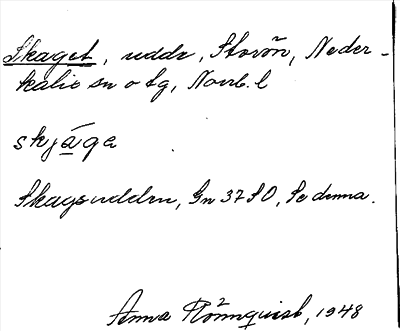 Skaget, udde, Storön, Neder-
kalix sn o tg, Norrb. l
skjága
Skagsudden, Gn 37 SO, Se denna.
Anna Rönnquist, 1948